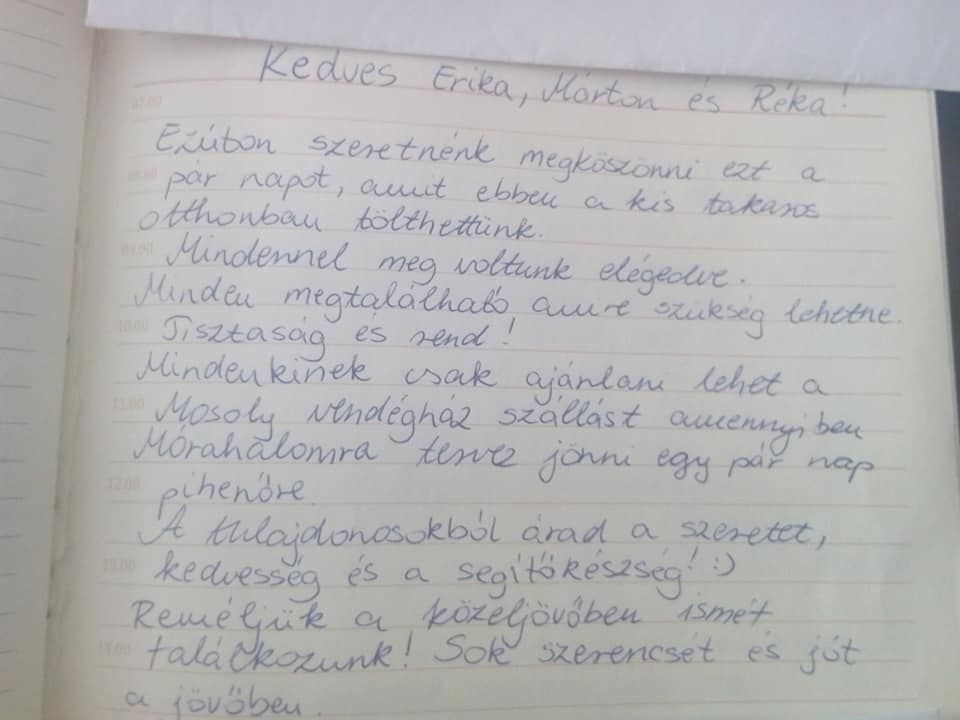 Kedves Erika, Márton és Réka!
07.00
Ezúton szeretnénk megköszönni ezt a
08.00
pár napot, amit ebben a kis takaros
otthonban tölthettünk.
09.00
Mindennel meg voltunk elégedve.
Minden megtalálható, amire szükség lehetne.
10.00
Tisztaság és rend!
Mindenkinek csak ajánlani lehet a
11.00
Mosoly vendégház szállást amennyiben
Mórahalomra tervez jönni egy pár nap
12.00
pihenőre
A tulajdonosokból árad a szeretet,
13.00
kedvesség és a segítőkészség! :)
Reméljük a közeljövőben ismét
14.00
találkozunk! Sok szerencsét és jót
a jövőben.